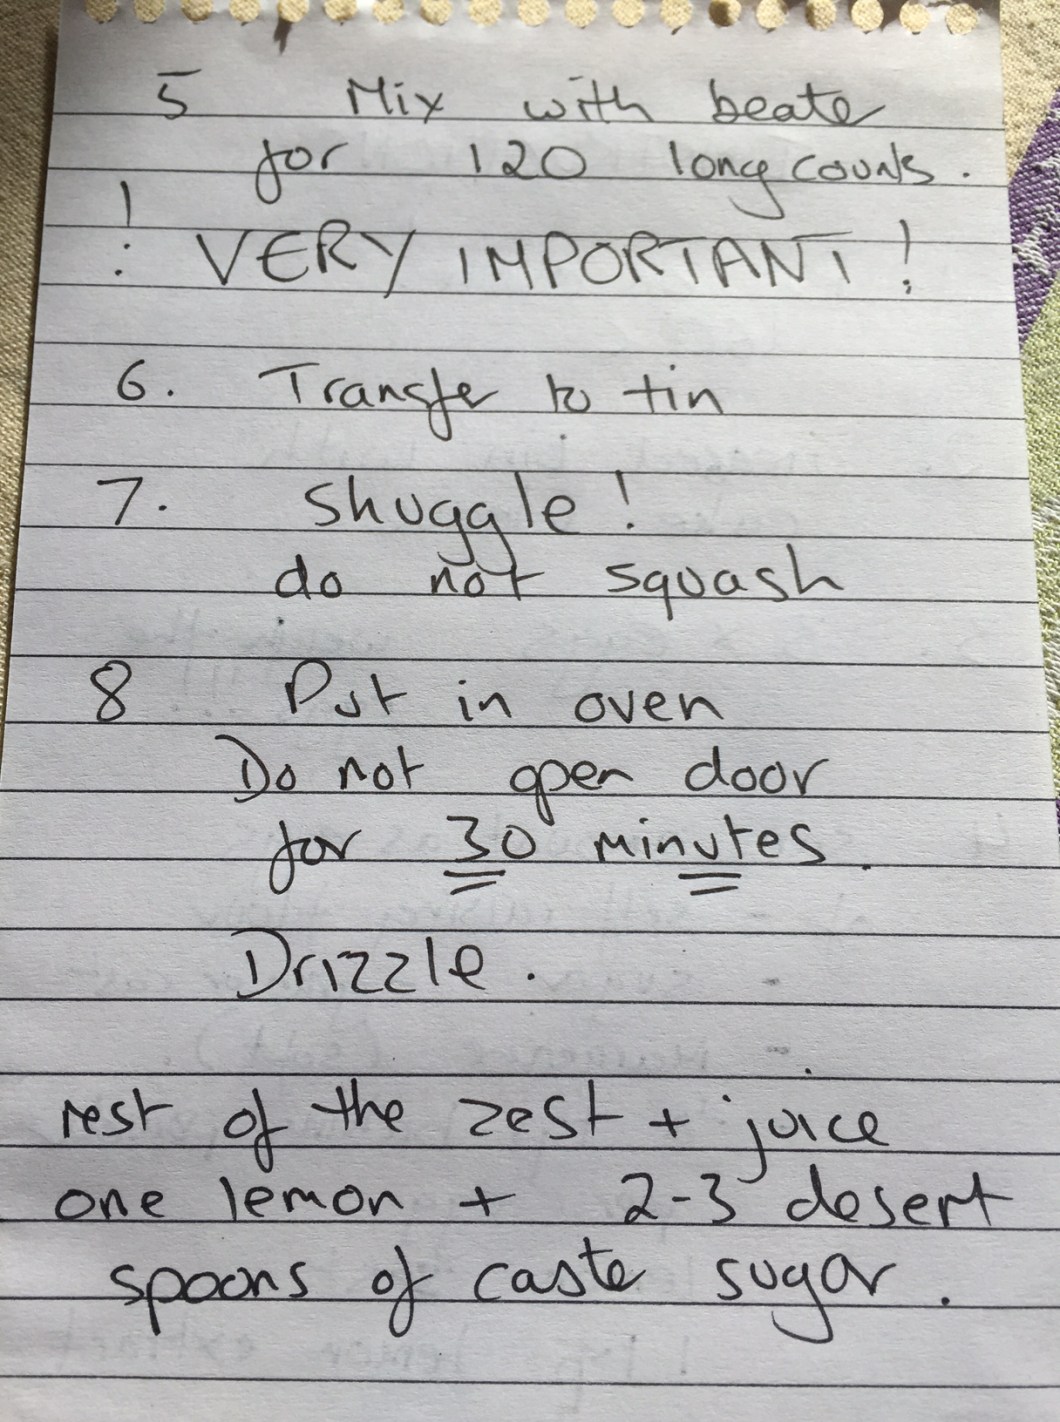 5 Mix with beater
for 120 long counts.
! VERY IMPORTANT!
6. Transfer to tin
7. Shuggle!
do not squash
8 Put in oven
Do not open door
for 30 minutes.
Drizzle.
rest of the zest + juice
one lemon + 2-3 desert
spoons of caster sugar.